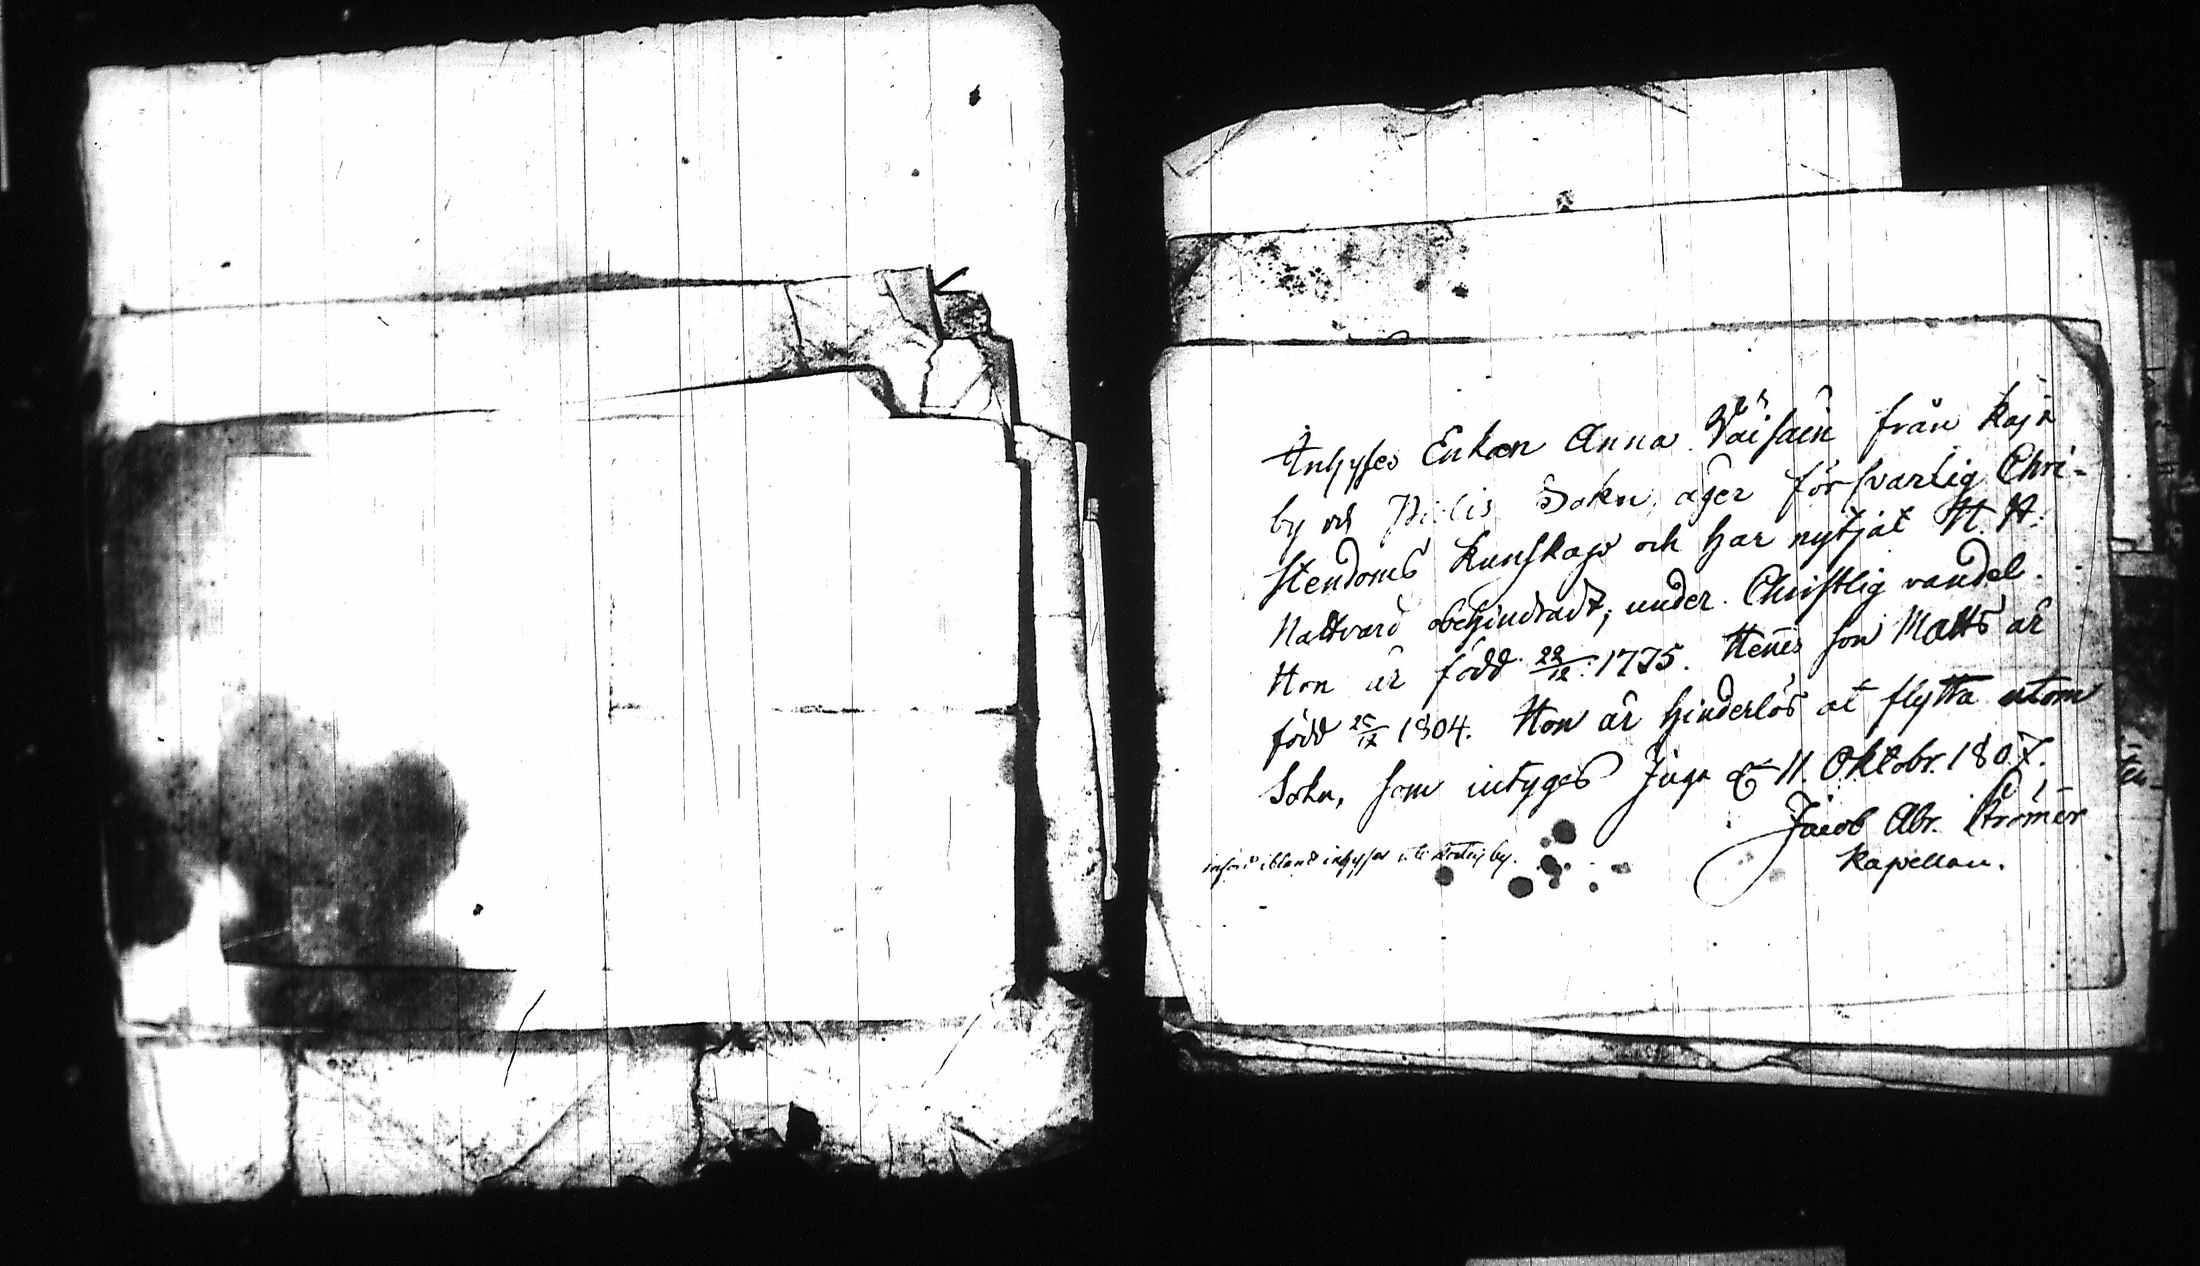 Inhyses Enkan Anna Väisäin från Kaja
by och Sokn, äger försvarlig Chri-
stendoms kunskap och har nytjat H. H.
Nattvard obehindradt; under Christlig vandel.
Hon är född 22/12 1775. Henes son Matts är
född 25/12 1804. Hon är hinderlös at flytta utom
Sokn, som intyges Juga d 11 Oktobr. 1807.
Jacob Abr. Krömer
Kapellan.
införd ibland inhyses uti by.